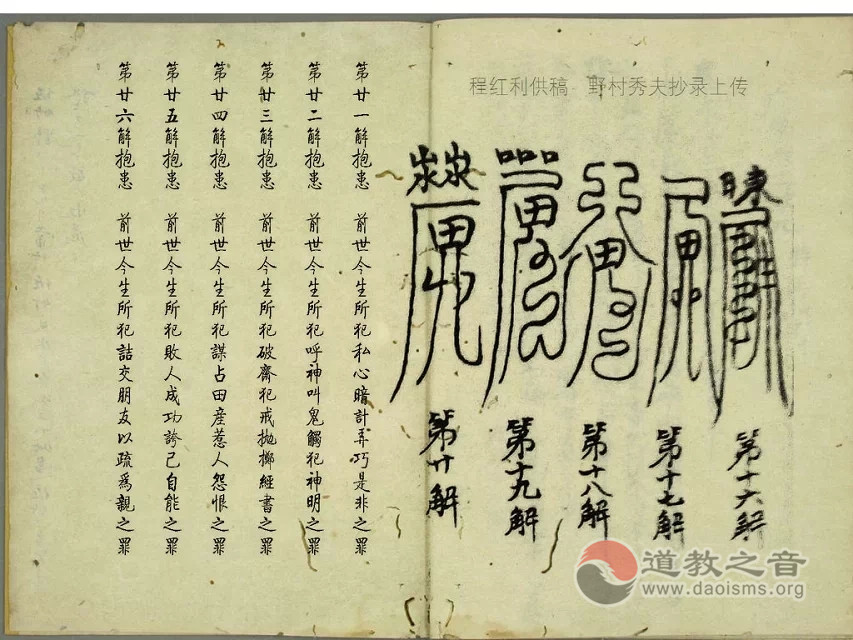 程红利供稿 野村秀夫抄录上传
第十六解
第十七解
第十八解
第十九解
第廿解
第廿一解抱患 前世今生所犯私心暗計弄巧是非之罪
第廿二解抱患 前世今生所犯呼神叫鬼觸犯神明之罪
第廿三解抱患 前世今生所犯破齋犯戒拋擲經書之罪
第廿四解抱患 前世今生所犯謀占田産惹人怨恨之罪
第廿五解抱患 前世今生所犯敗人成功誇己自能之罪
第廿六解抱患 前世今生所犯詰交朋友以疏爲親之罪
道教之音
www.daoisms.org